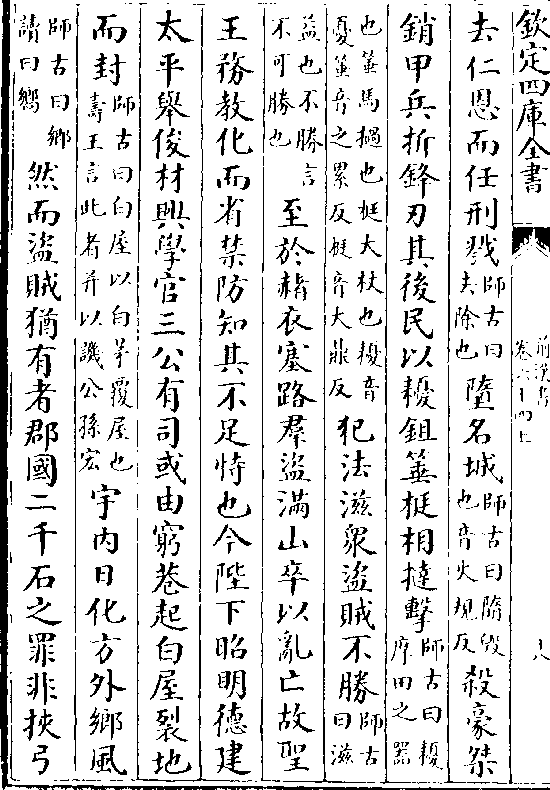 欽定四庫全書
前漢書
卷六十四上
十八
去仁恩而任刑戮師古曰去除也墮名城師古曰墮毀也音火規反殺豪桀
銷甲兵折鋒刃其後民以耰鉏箠梃相撻擊師古曰耰摩田之器
也箠馬檛也梃大杖也耰音憂箠音之累反梃音大鼎反犯法滋衆盜賊不勝師古曰滋
益也不勝言不可勝也至於赭衣塞路羣盜滿山卒以亂亡故聖
王務教化而省禁防知其不足恃也今陛下昭明德建
太平舉俊材興學官三公有司或由窮巷起白屋裂地
而封師古曰白屋以白茅覆屋也壽王言此者并以譏公孫宏宇内日化方外鄉風
師古曰鄉讀曰嚮然而盜賊猶有者郡國二千石之罪非挾弓